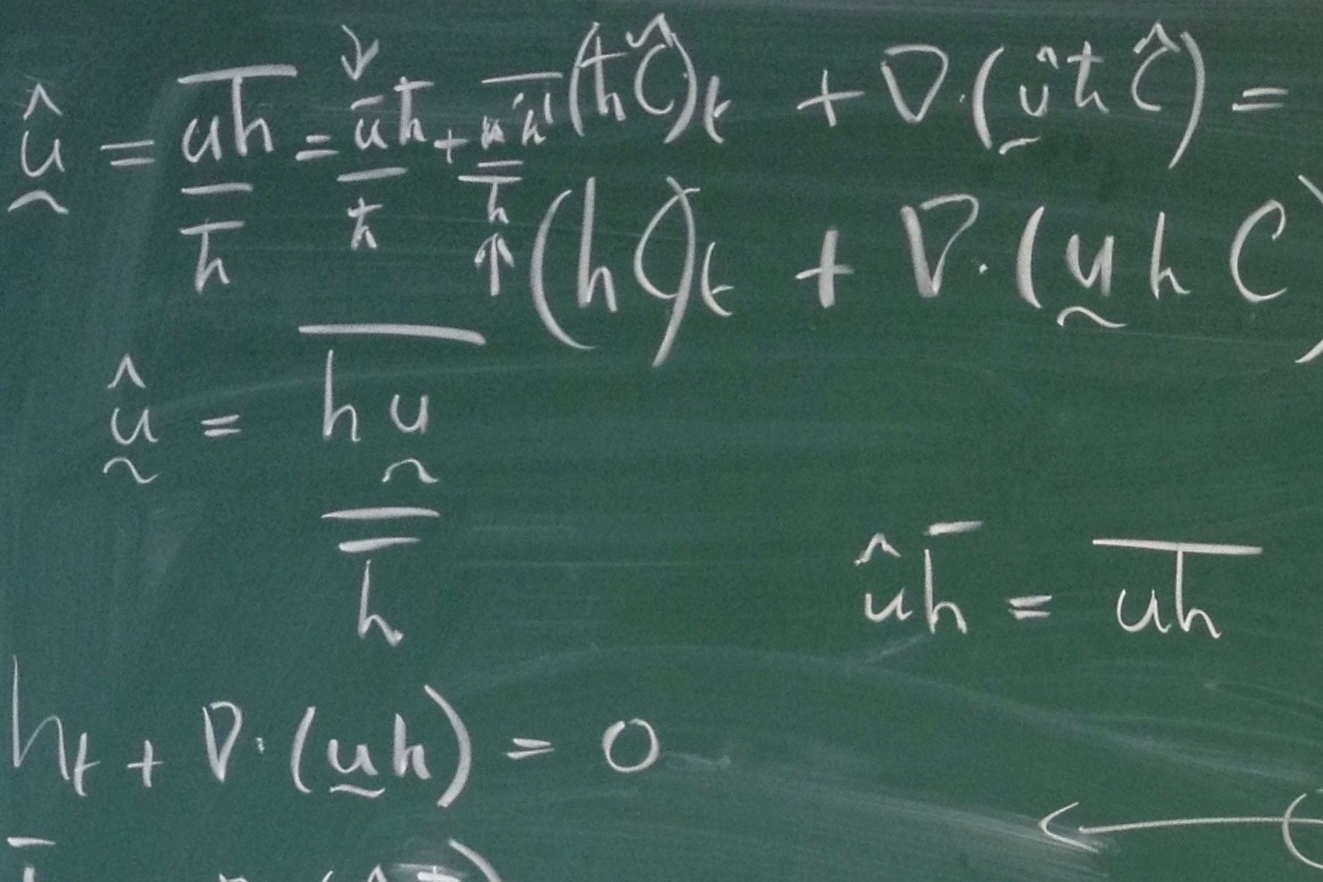 û = \overline{uh} / \overline{h} = ū h̄ / h̄ + \overline{u'h'} / h̄
(h̄Ĉ)t + ∇·(û h̄ Ĉ) =
(hC)t + ∇·(u h C)
û = \overline{hu} / \overline{h}
û h̄ = \overline{uh}
ht + ∇·(uh) = 0